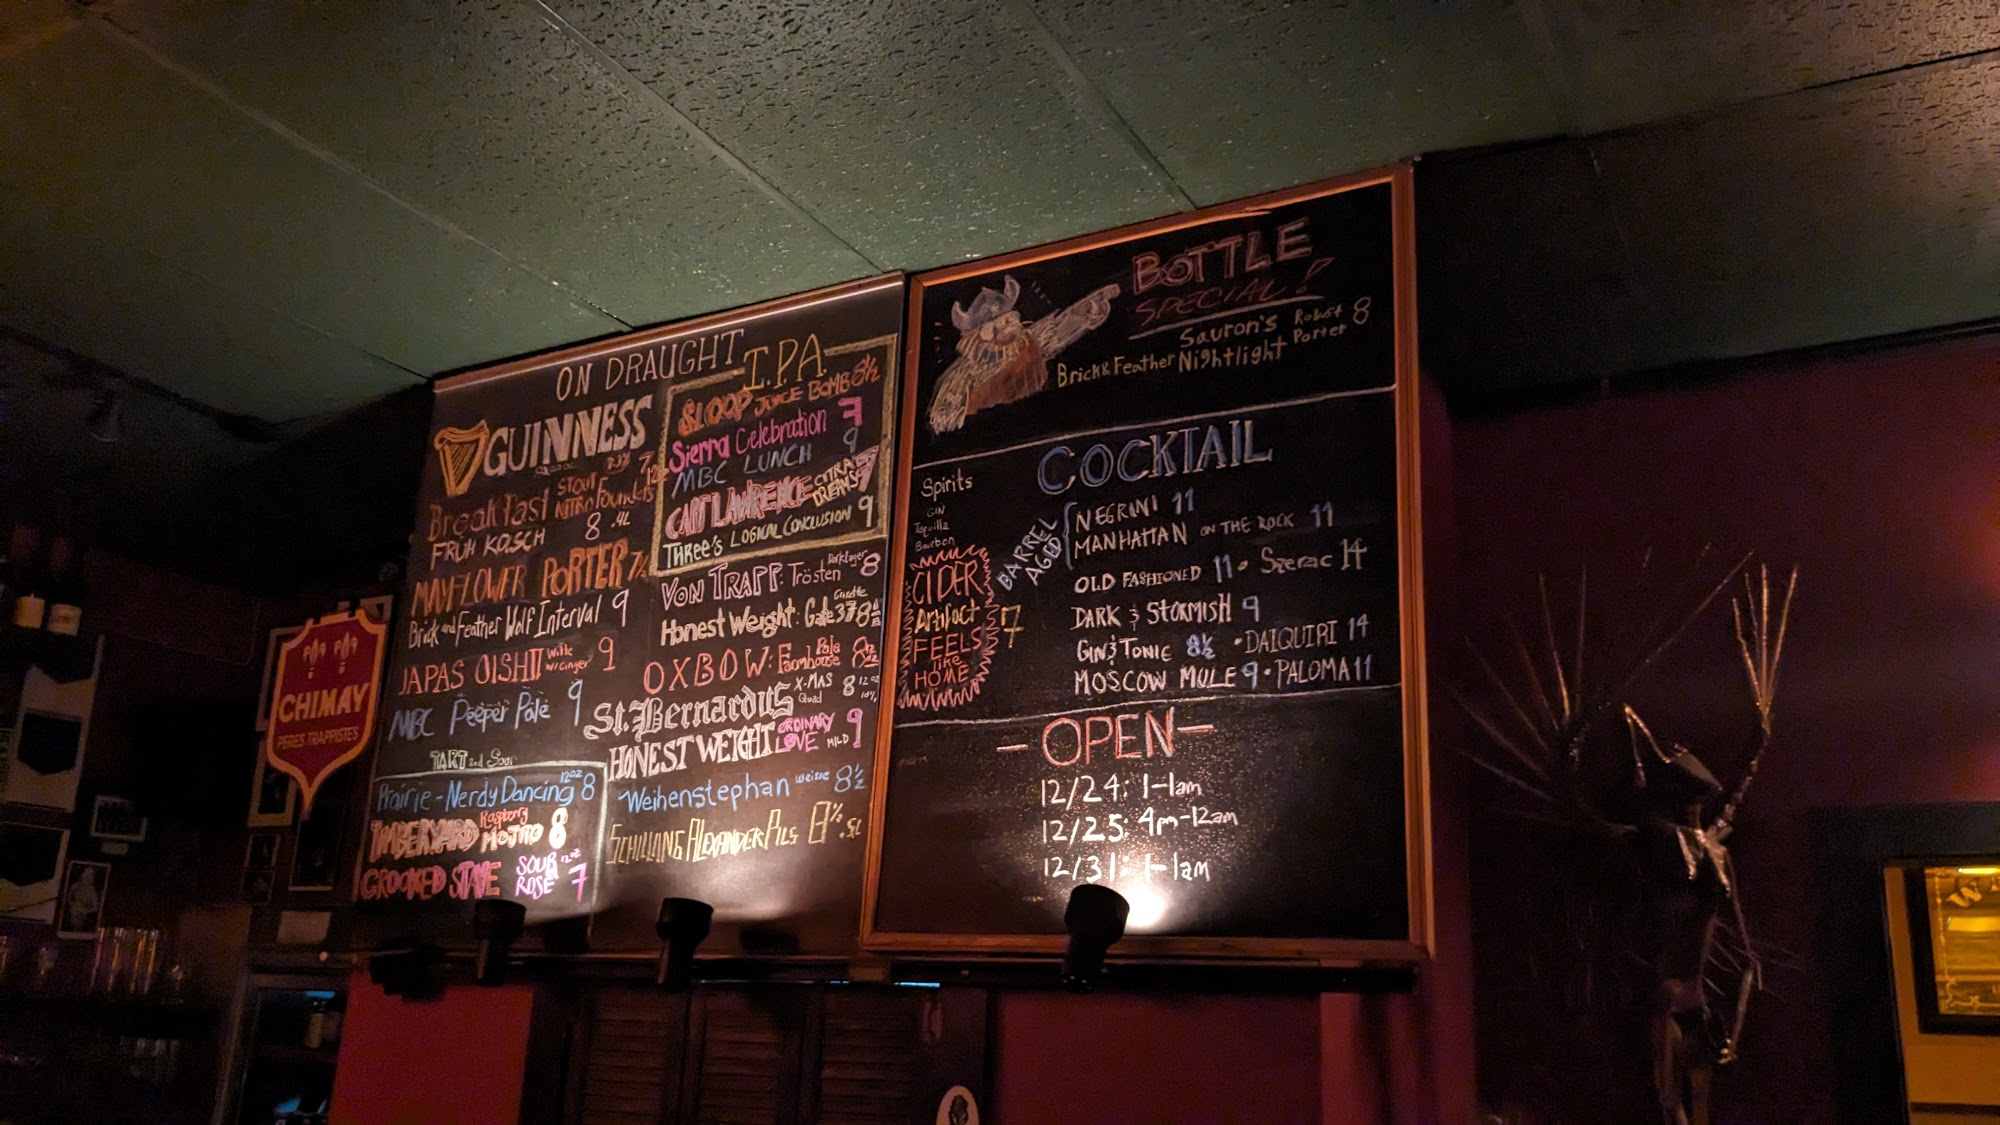 ON DRAUGHT
GUINNESS
7
Breakfast STOUT NITRO Founders
FRUH KOLSCH 8 .4L
MAYFLOWER PORTER 7½
Brick and Feather Wolf Interval 9
JAPAS OISHII Witte w/ Ginger 9
MBC Peeper Pale 9
TART and Sour
Prairie - Nerdy Dancing 12oz 8
TIMBERYARD Raspberry MOJITO 8
CROOKED STAVE SOUR ROSE 12oz 7
I.P.A
SLOOP JUICE BOMB 8½
Sierra Celebration 7
MBC LUNCH 9
CAPT LAWRENCE CITRA DREAMS 7
THREE'S LOGICAL CONCLUSION 9
VON TRAPP: Trösten Dark Lager 8
Honest Weight: Gate 37 Grisette 8½
OXBOW: Farmhouse Pale 8½
St. Bernardus X-MAS Quad 8 12oz 10%
HONEST WEIGHT ORDINARY LOVE MILD 9
Weihenstephan weisse 8½
SCHILLING ALEXANDER PILS 8½ .5L
CHIMAY
PERES TRAPPISTES
BOTTLE
SPECIAL!
Sauron's Robust 8
Brick & Feather Nightlight Porter
COCKTAIL
Spirits
GIN
Tequilla
Bourbon
BARREL AGED
NEGRINI 11
MANHATTAN ON THE ROCK 11
OLD FASHIONED 11 • Szerac 14
DARK & STORMISH 9
GIN & TONIC 8½ • DAIQUIRI 14
MOSCOW MULE 9 • PALOMA 11
CIDER
Artifact 7
FEELS
like
HOME
- OPEN -
12/24: 1-1am
12/25: 4pm-12am
12/31: 1-1am